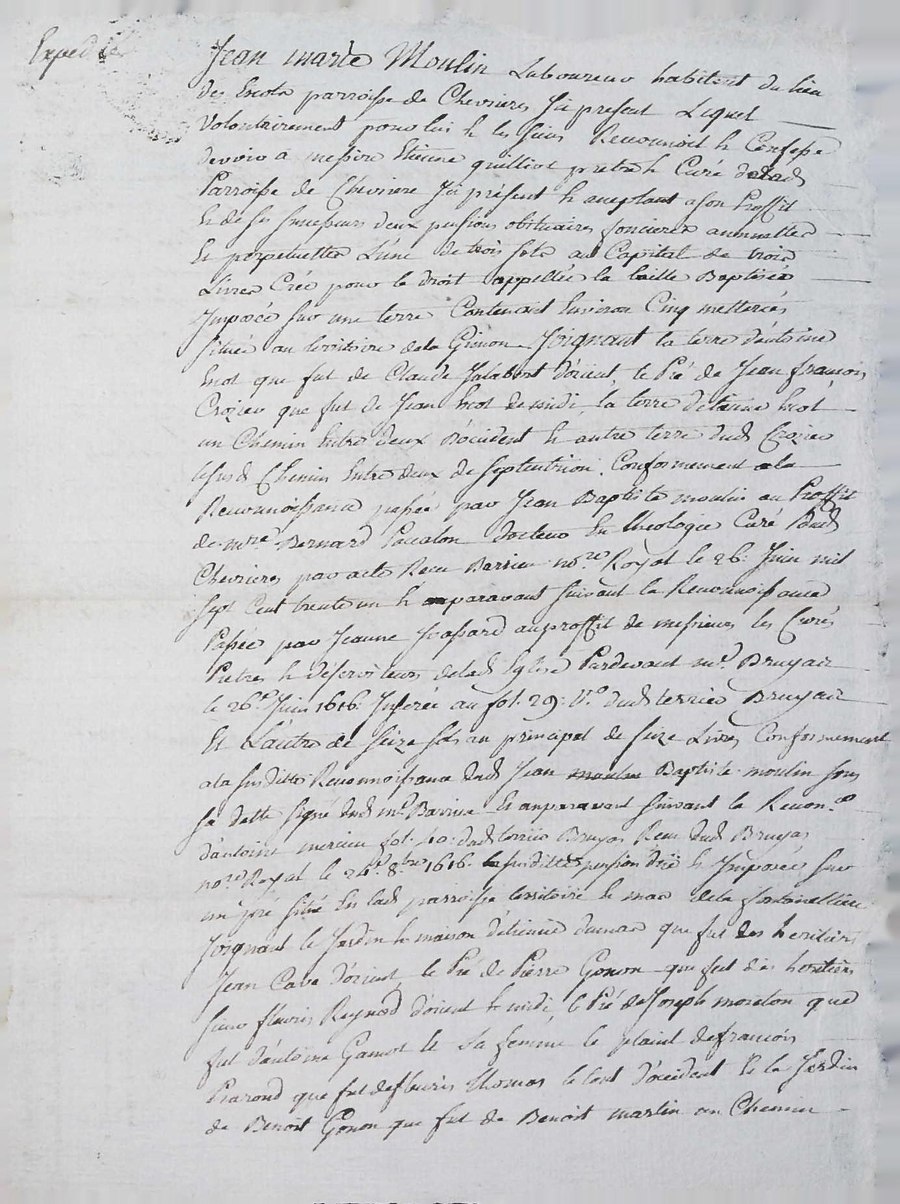 Expediée
Jean marie Moulin Laboureur habitant du lieu
des Escots parroisse de Chevrieres Ji present Lequel
Volontairement pour lui & les siens Reconnoit & Confesse
devoir a messire Etienne quilliot prêtre & Curé deladt
Parroisse de Chevriere Ji présent & acceptant a son proffit
& de ses successeurs deux pensions obituaires foncieres annuelles
Et perpetuelles L'une de trois sols au Capital de trois
Livres Créé pour le droit appellée la taille Baptisée
Jmposée sur une terre Contenant Environ Cinq metterées
située au territoire dela Gienon Joignant la terre d'antoine
que fut de Claude Jalabert d'orient, le Pré de Jean françois
Crozier que fut de Jean de midi, la terre d'etienne
un Chemin Entre deux d'occident & autre terre dudt Crozier
lesusdt Chemin Entre deux de septentrion Conformement ala
Reconnoissance passée par Jean Baptiste moulin au Proffit
de mre Bernard Pacalon docteur En theologie Curé dudt
Chevrieres par acte Recu Barrieu nore Royal le 26: Juin mil
sept Cent trente un & auparavant suivant la Reconnoissance
Passée par Jeanne au proffit de messieurs les Curés
Pretres & desserviteurs deladt Eglise Pardevant me Bruyas
le 26e Juin 1616: Jnserée au fol. 29: Vo dudt terrier Bruyas
Et L'autre de seize sols au principal de seize Livres Conformement
ala susditte Reconnoissance dudt Jean Baptiste moulin sous
sa datte signé dudt me Barrieu & auparavant suivant la Reconce
d'antoine mercieu fol. 10: dudt terrier Bruyas Recu dudt Bruyas
nore Royal le 24e 8bre 1616. susditte pension düe & Jmposée sur
un pré situé En ladt parroisse territoire & mas dela fontanelliere
Joignant le Jardin & maison d'etienne dumas que fut des heritiers
Jean Cave d'orient, le Pré de Pierre Gonon que fut des heritiers
sieur fleuris Reynod d'orient & midi, le Pré de Joseph moreton que
fut d'antoine Gamot & sa femme & de françois
que fut de fleuris thomas le tout d'occident & le Jardin
de Benoit Gonon que fut de Benoit martin un Chemin